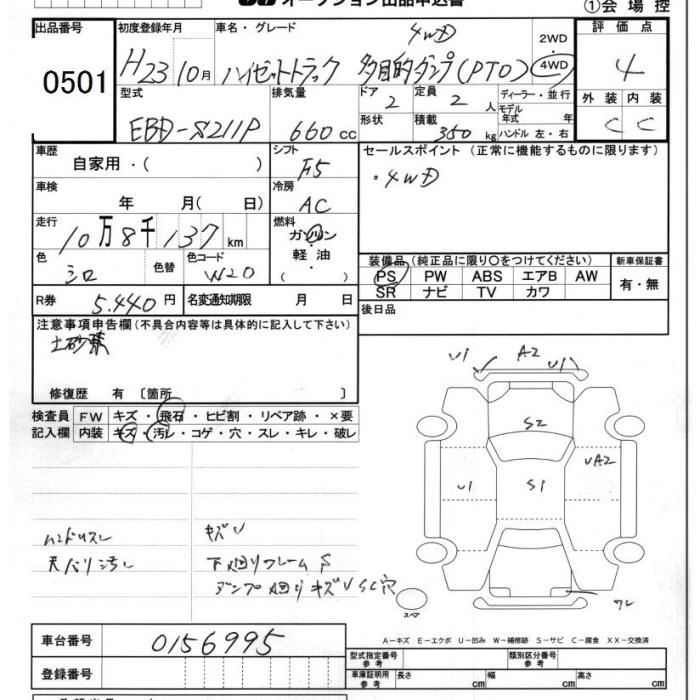 オークション出品申込書
①会場控
出品番号 0501
初度登録年月 H23 10月
車名・グレード 4WD
ハイゼットトラック 多目的ダンプ(PTO)
2WD
4WD
評価点 4
外装 C 内装 C
型式 EBD-S211P
排気量 660cc
ドア 2
定員 2人
ディーラー・並行
モデル年式 年
形状
積載 350kg
ハンドル 左・右
車歴 自家用・( )
シフト F5
セールスポイント(正常に機能するものに限ります)
・4WD
車検 年 月( 日)
冷房 AC
走行 10万8千137km
燃料 ガソリン・軽油・( )
色 シロ
色替
色コード W20
装備品(純正品に限り○をつけてください)
PS PW ABS エアB AW
SR ナビ TV カワ
新車保証書 有・無
R券 5.440円
名変通知期限 月 日
後日品
注意事項申告欄(不具合内容等は具体的に記入して下さい)
土砂禁
修復歴 有〔箇所 〕
検査員記入欄
FW キズ・飛石・ヒビ割・リペア跡・×要
内装 キズ・汚レ・コゲ・穴・スレ・キレ・破レ
U1 A2 U1
S2
UA2
U1 S1
ハンドルスレ キズU
天バリ汚レ 下廻りフレームS
ダンプ廻りキズUSC穴
スペア
ワレ
車台番号 0156995
A-キズ E-エクボ U-凹み W-補修跡 S-サビ C-腐食 XX-交換済
登録番号
型式指定番号 参考
類別区分番号 参考
車庫証明用 参考 長さ cm 幅 cm 高さ cm